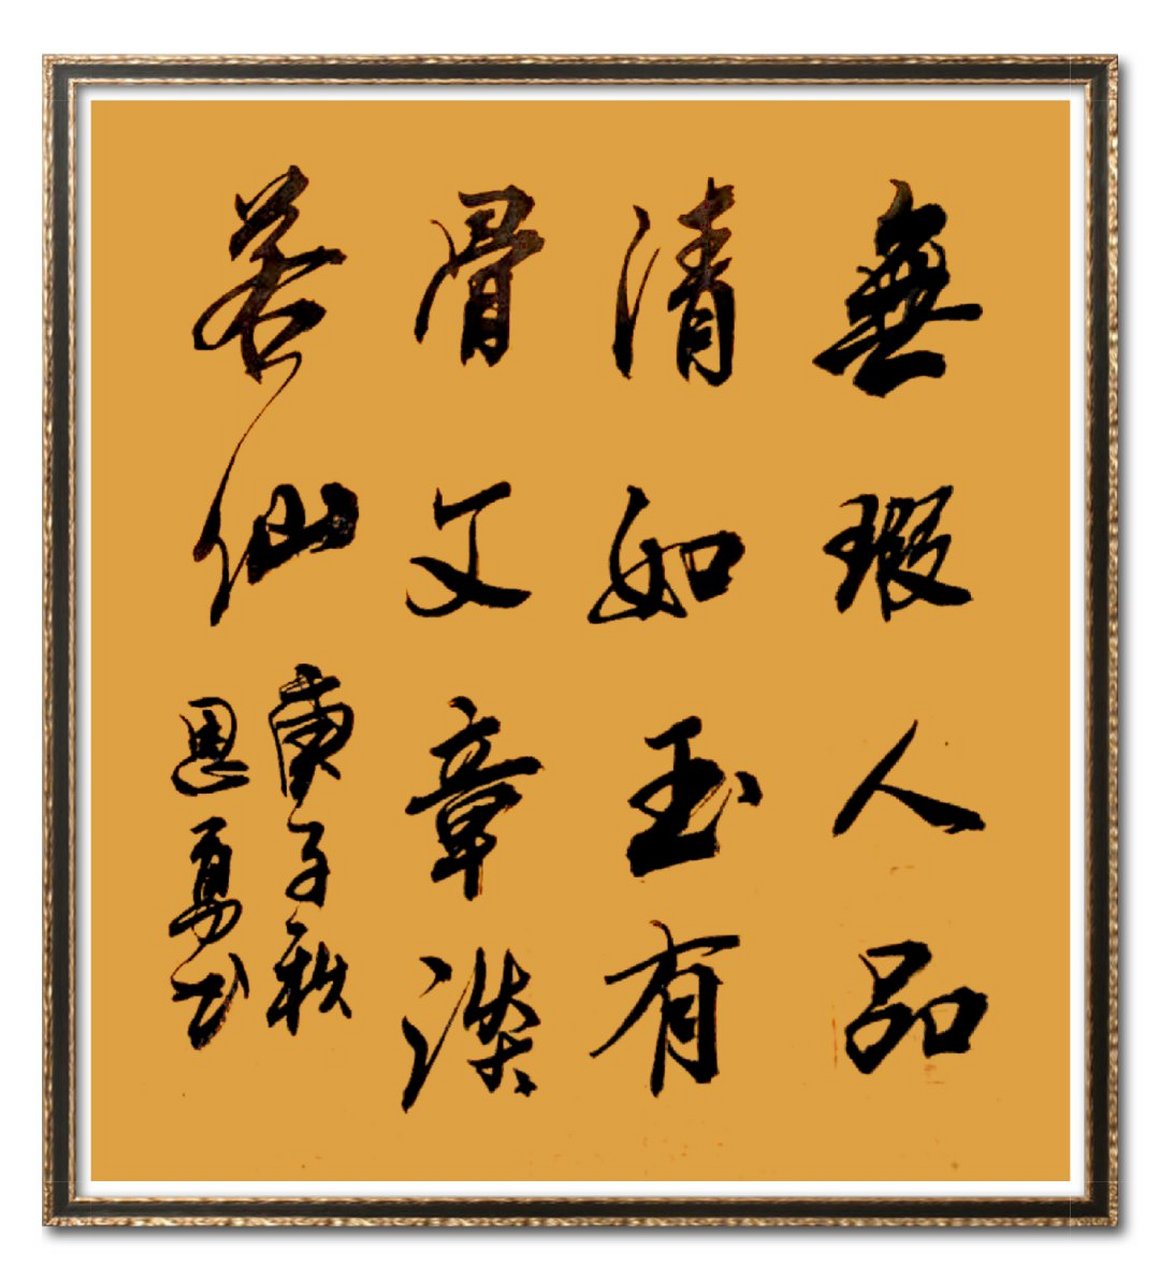 無瑕人品
清如玉有
骨文章淡
若仙
庚子秋
恩勇书